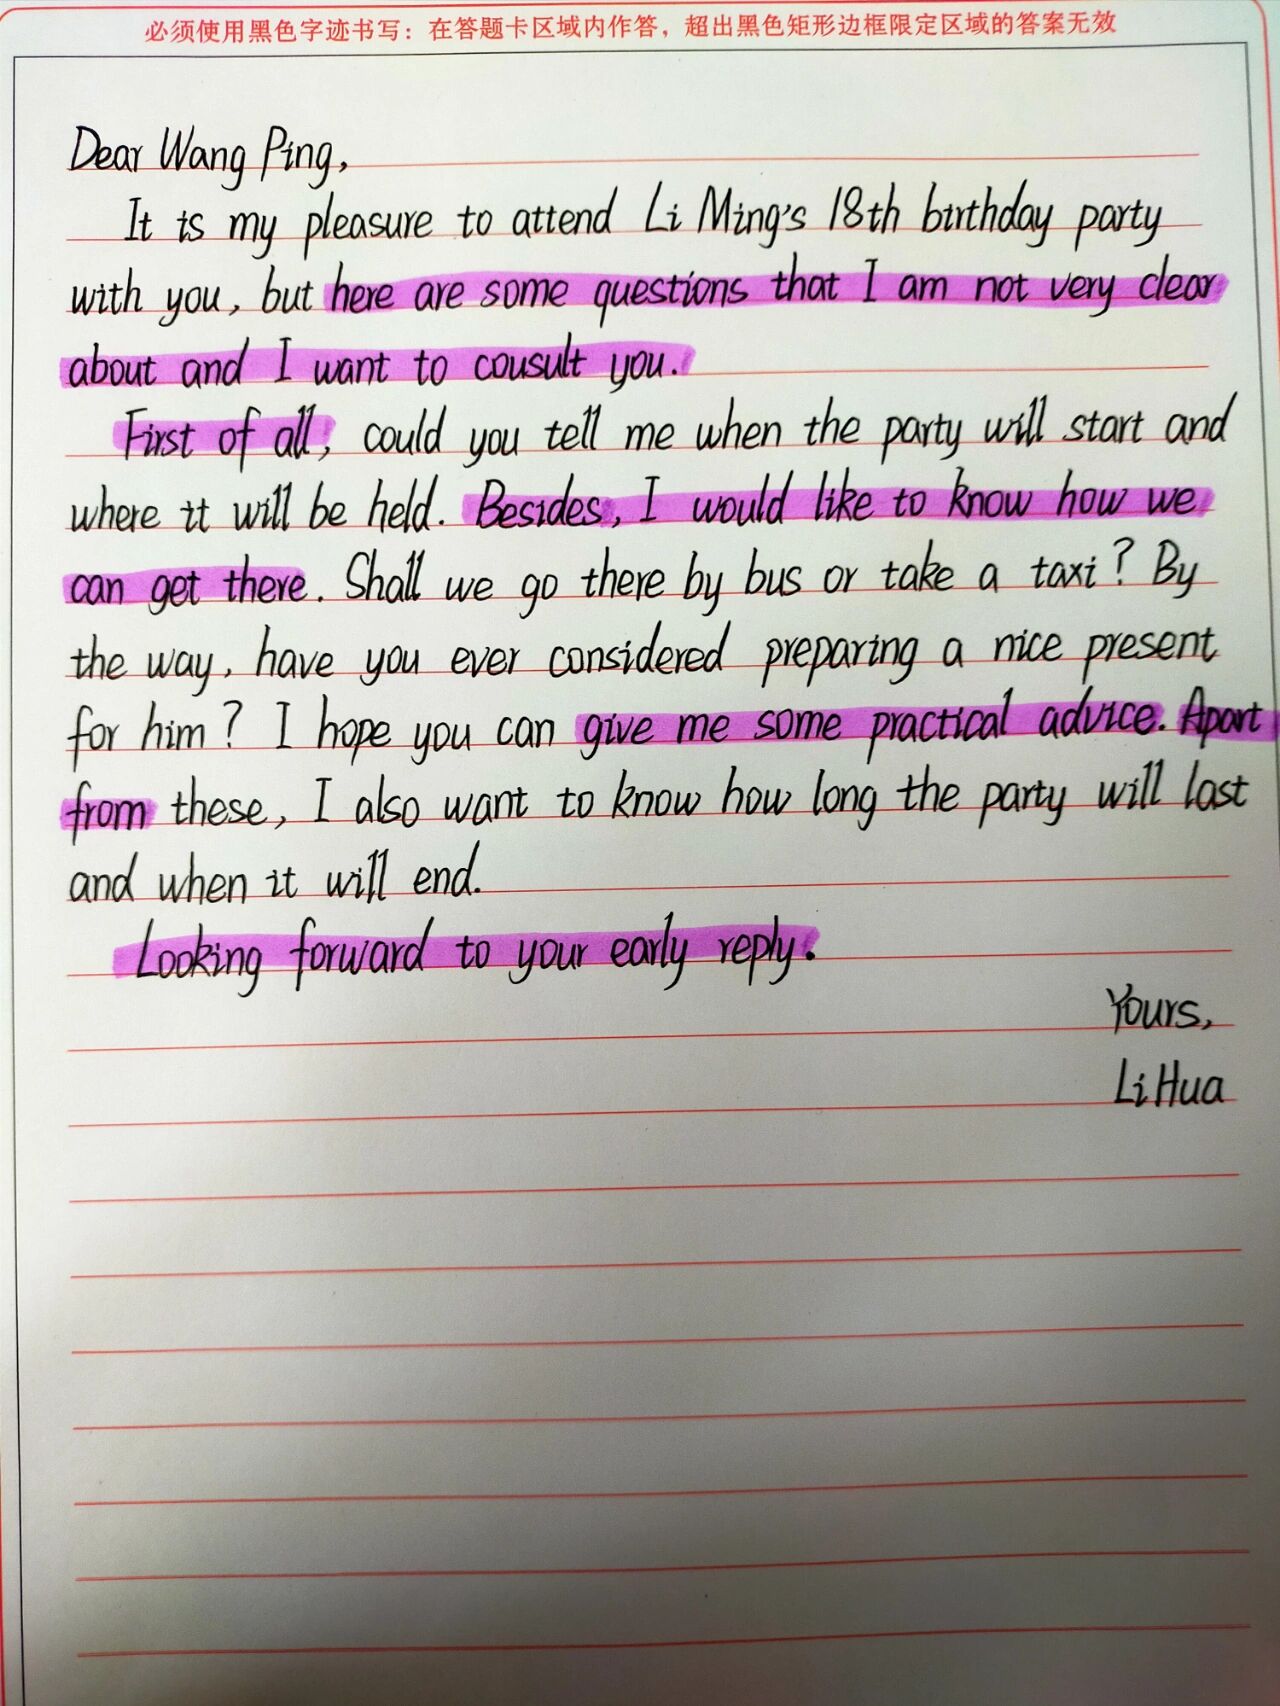 必须使用黑色字迹书写：在答题卡区域内作答，超出黑色矩形边框限定区域的答案无效
Dear Wang Ping,
It is my pleasure to attend Li Ming's 18th birthday party
with you, but here are some questions that I am not very clear
about and I want to cousult you.
First of all, could you tell me when the party will start and
where it will be held. Besides, I would like to know how we
can get there. Shall we go there by bus or take a taxi? By
the way, have you ever considered preparing a nice present
for him? I hope you can give me some practical advice. Apart
from these, I also want to know how long the party will last
and when it will end.
Looking forward to your early reply.
Yours,
Li Hua